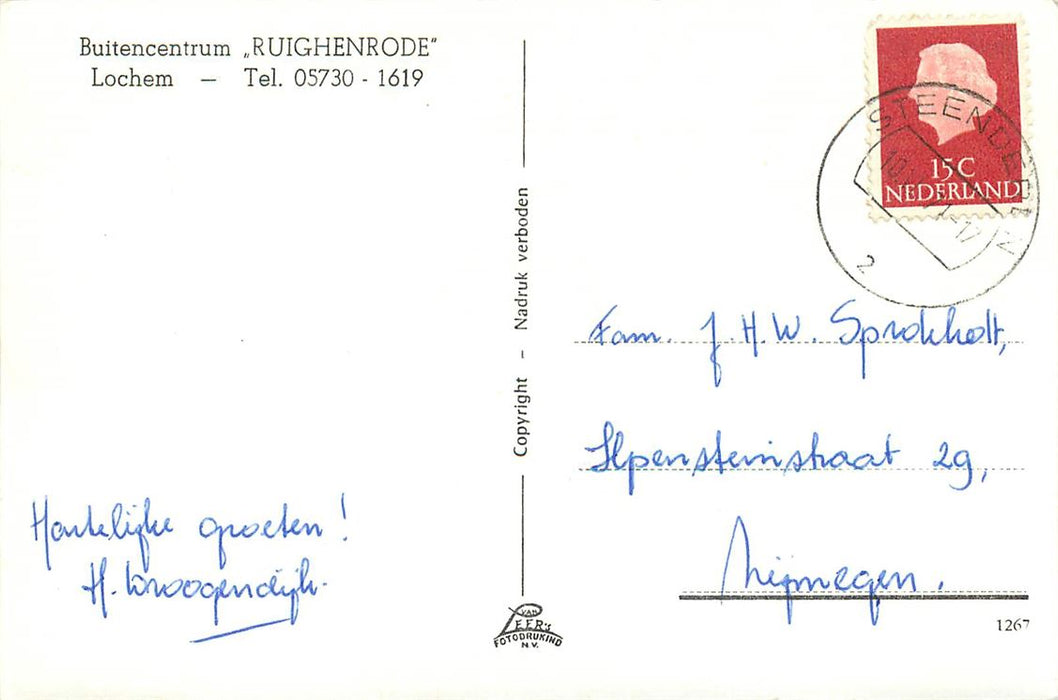 Buitencentrum „RUIGHENRODE”
Lochem — Tel. 05730 - 1619
Hartelijke groeten!
H.
Copyright - Nadruk verboden
VAN
LEER's
FOTODRUKIND
N.V.
15C
NEDERLAND
STEENDEREN
2
Fam. J. H. W. Sprokholt,
Ilpensteinstraat 29,
Nijmegen.
1267